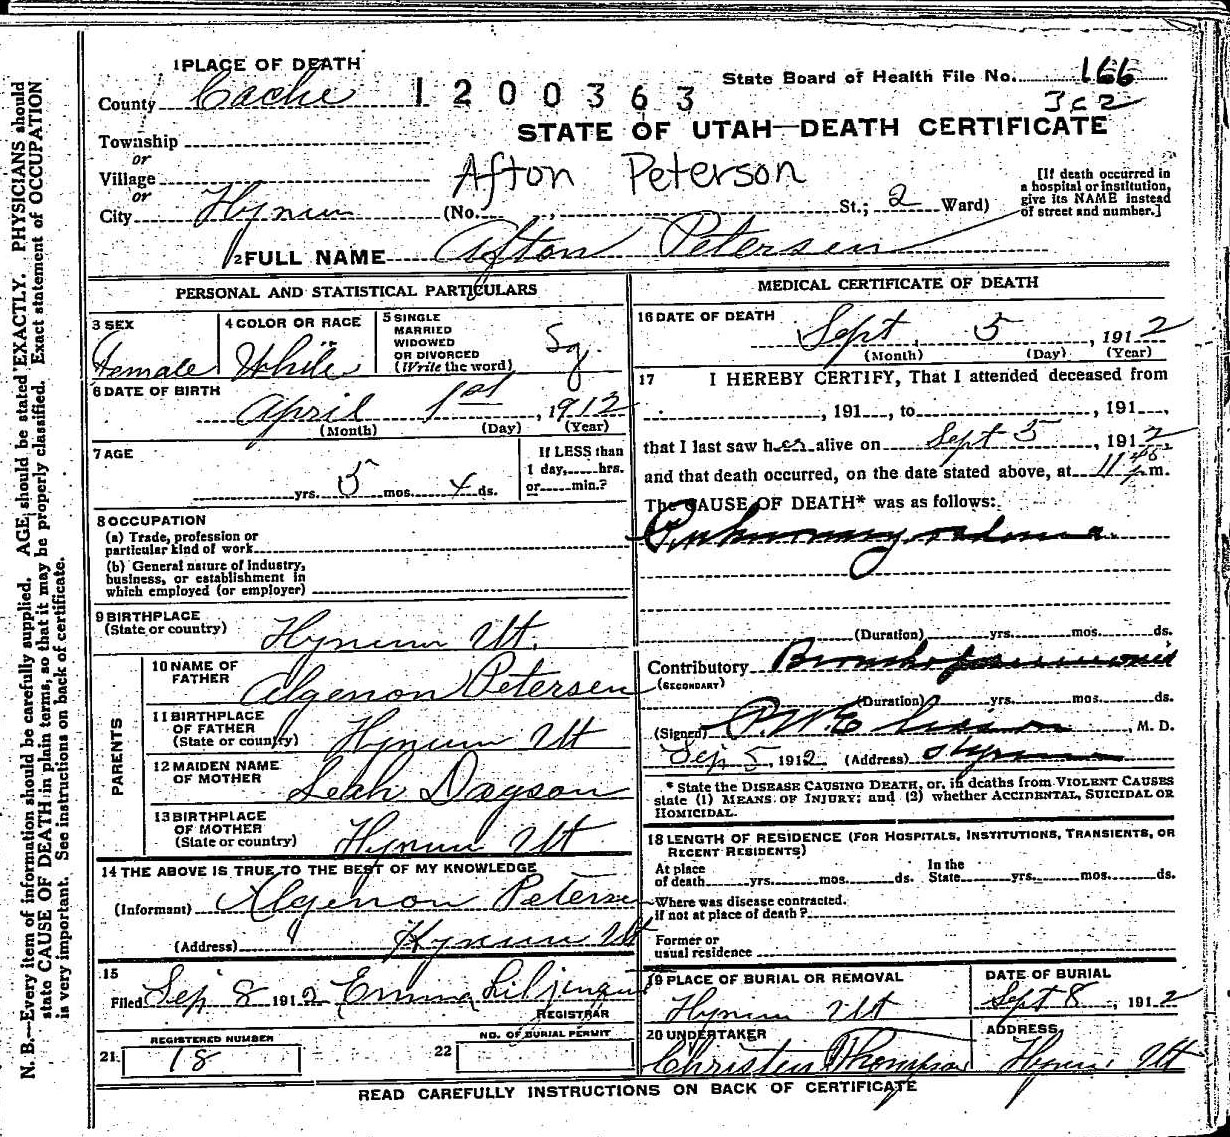 1 PLACE OF DEATH
State Board of Health File No. 166
County Cache 1200363
3 c 2
STATE OF UTAH—DEATH CERTIFICATE
Township
or
Village
Afton Peterson
or
City Hyrum (No. , St.; 2 Ward)
[If death occurred in
a hospital or institution,
give its NAME instead
of street and number.]
2 FULL NAME Afton Petersen
PERSONAL AND STATISTICAL PARTICULARS
3 SEX
Female
4 COLOR OR RACE
White
5 SINGLE
MARRIED
WIDOWED
OR DIVORCED
(Write the word)
Sg.
6 DATE OF BIRTH
April 1st, 1912
(Month) (Day) (Year)
7 AGE
yrs. 5 mos. 4 ds.
If LESS than
1 day, hrs.
or min.?
8 OCCUPATION
(a) Trade, profession or
particular kind of work
(b) General nature of industry,
business, or establishment in
which employed (or employer)
9 BIRTHPLACE
(State or country)
Hyrum Ut.
PARENTS
10 NAME OF
FATHER
Algenon Petersen
11 BIRTHPLACE
OF FATHER
(State or country)
Hyrum Ut
12 MAIDEN NAME
OF MOTHER
Leah
13 BIRTHPLACE
OF MOTHER
(State or country)
Hyrum Ut
14 THE ABOVE IS TRUE TO THE BEST OF MY KNOWLEDGE
(Informant) Algenon Petersen
(Address) Hyrum Ut
15
Filed Sep 8 1912 Emma Liljenquist
REGISTRAR
REGISTERED NUMBER
21. 18
NO. OF BURIAL PERMIT
22
MEDICAL CERTIFICATE OF DEATH
16 DATE OF DEATH
Sept. 5, 1912
(Month) (Day) (Year)
17 I HEREBY CERTIFY, That I attended deceased from
, 191 , to , 191 ,
that I last saw her alive on Sept 5, 1912,
and that death occurred, on the date stated above, at 11 45 p.m.
The CAUSE OF DEATH* was as follows:
Pulmonary oedema.
(Duration) yrs. mos. ds.
Contributory Broncho pneumonia
(SECONDARY)
(Duration) yrs. mos. ds.
(Signed) , M. D.
Sep 5, 1912 (Address) Hyrum
* State the DISEASE CAUSING DEATH, or, in deaths from VIOLENT CAUSES
state (1) MEANS OF INJURY; and (2) whether ACCIDENTAL, SUICIDAL OR
HOMICIDAL.
18 LENGTH OF RESIDENCE (FOR HOSPITALS, INSTITUTIONS, TRANSIENTS, OR
RECENT RESIDENTS)
At place
of death yrs. mos. ds.
In the
State yrs. mos. ds.
Where was disease contracted.
if not at place of death?
Former or
usual residence
19 PLACE OF BURIAL OR REMOVAL
Hyrum Ut
DATE OF BURIAL
Sept 8, 1912
20 UNDERTAKER
Christen Thompson
ADDRESS
Hyrum Ut
READ CAREFULLY INSTRUCTIONS ON BACK OF CERTIFICATE
N. B.—Every item of information should be carefully supplied. AGE should be stated EXACTLY. PHYSICIANS should
state CAUSE OF DEATH in plain terms, so that it may be properly classified. Exact statement of OCCUPATION
is very important. See instructions on back of certificate.